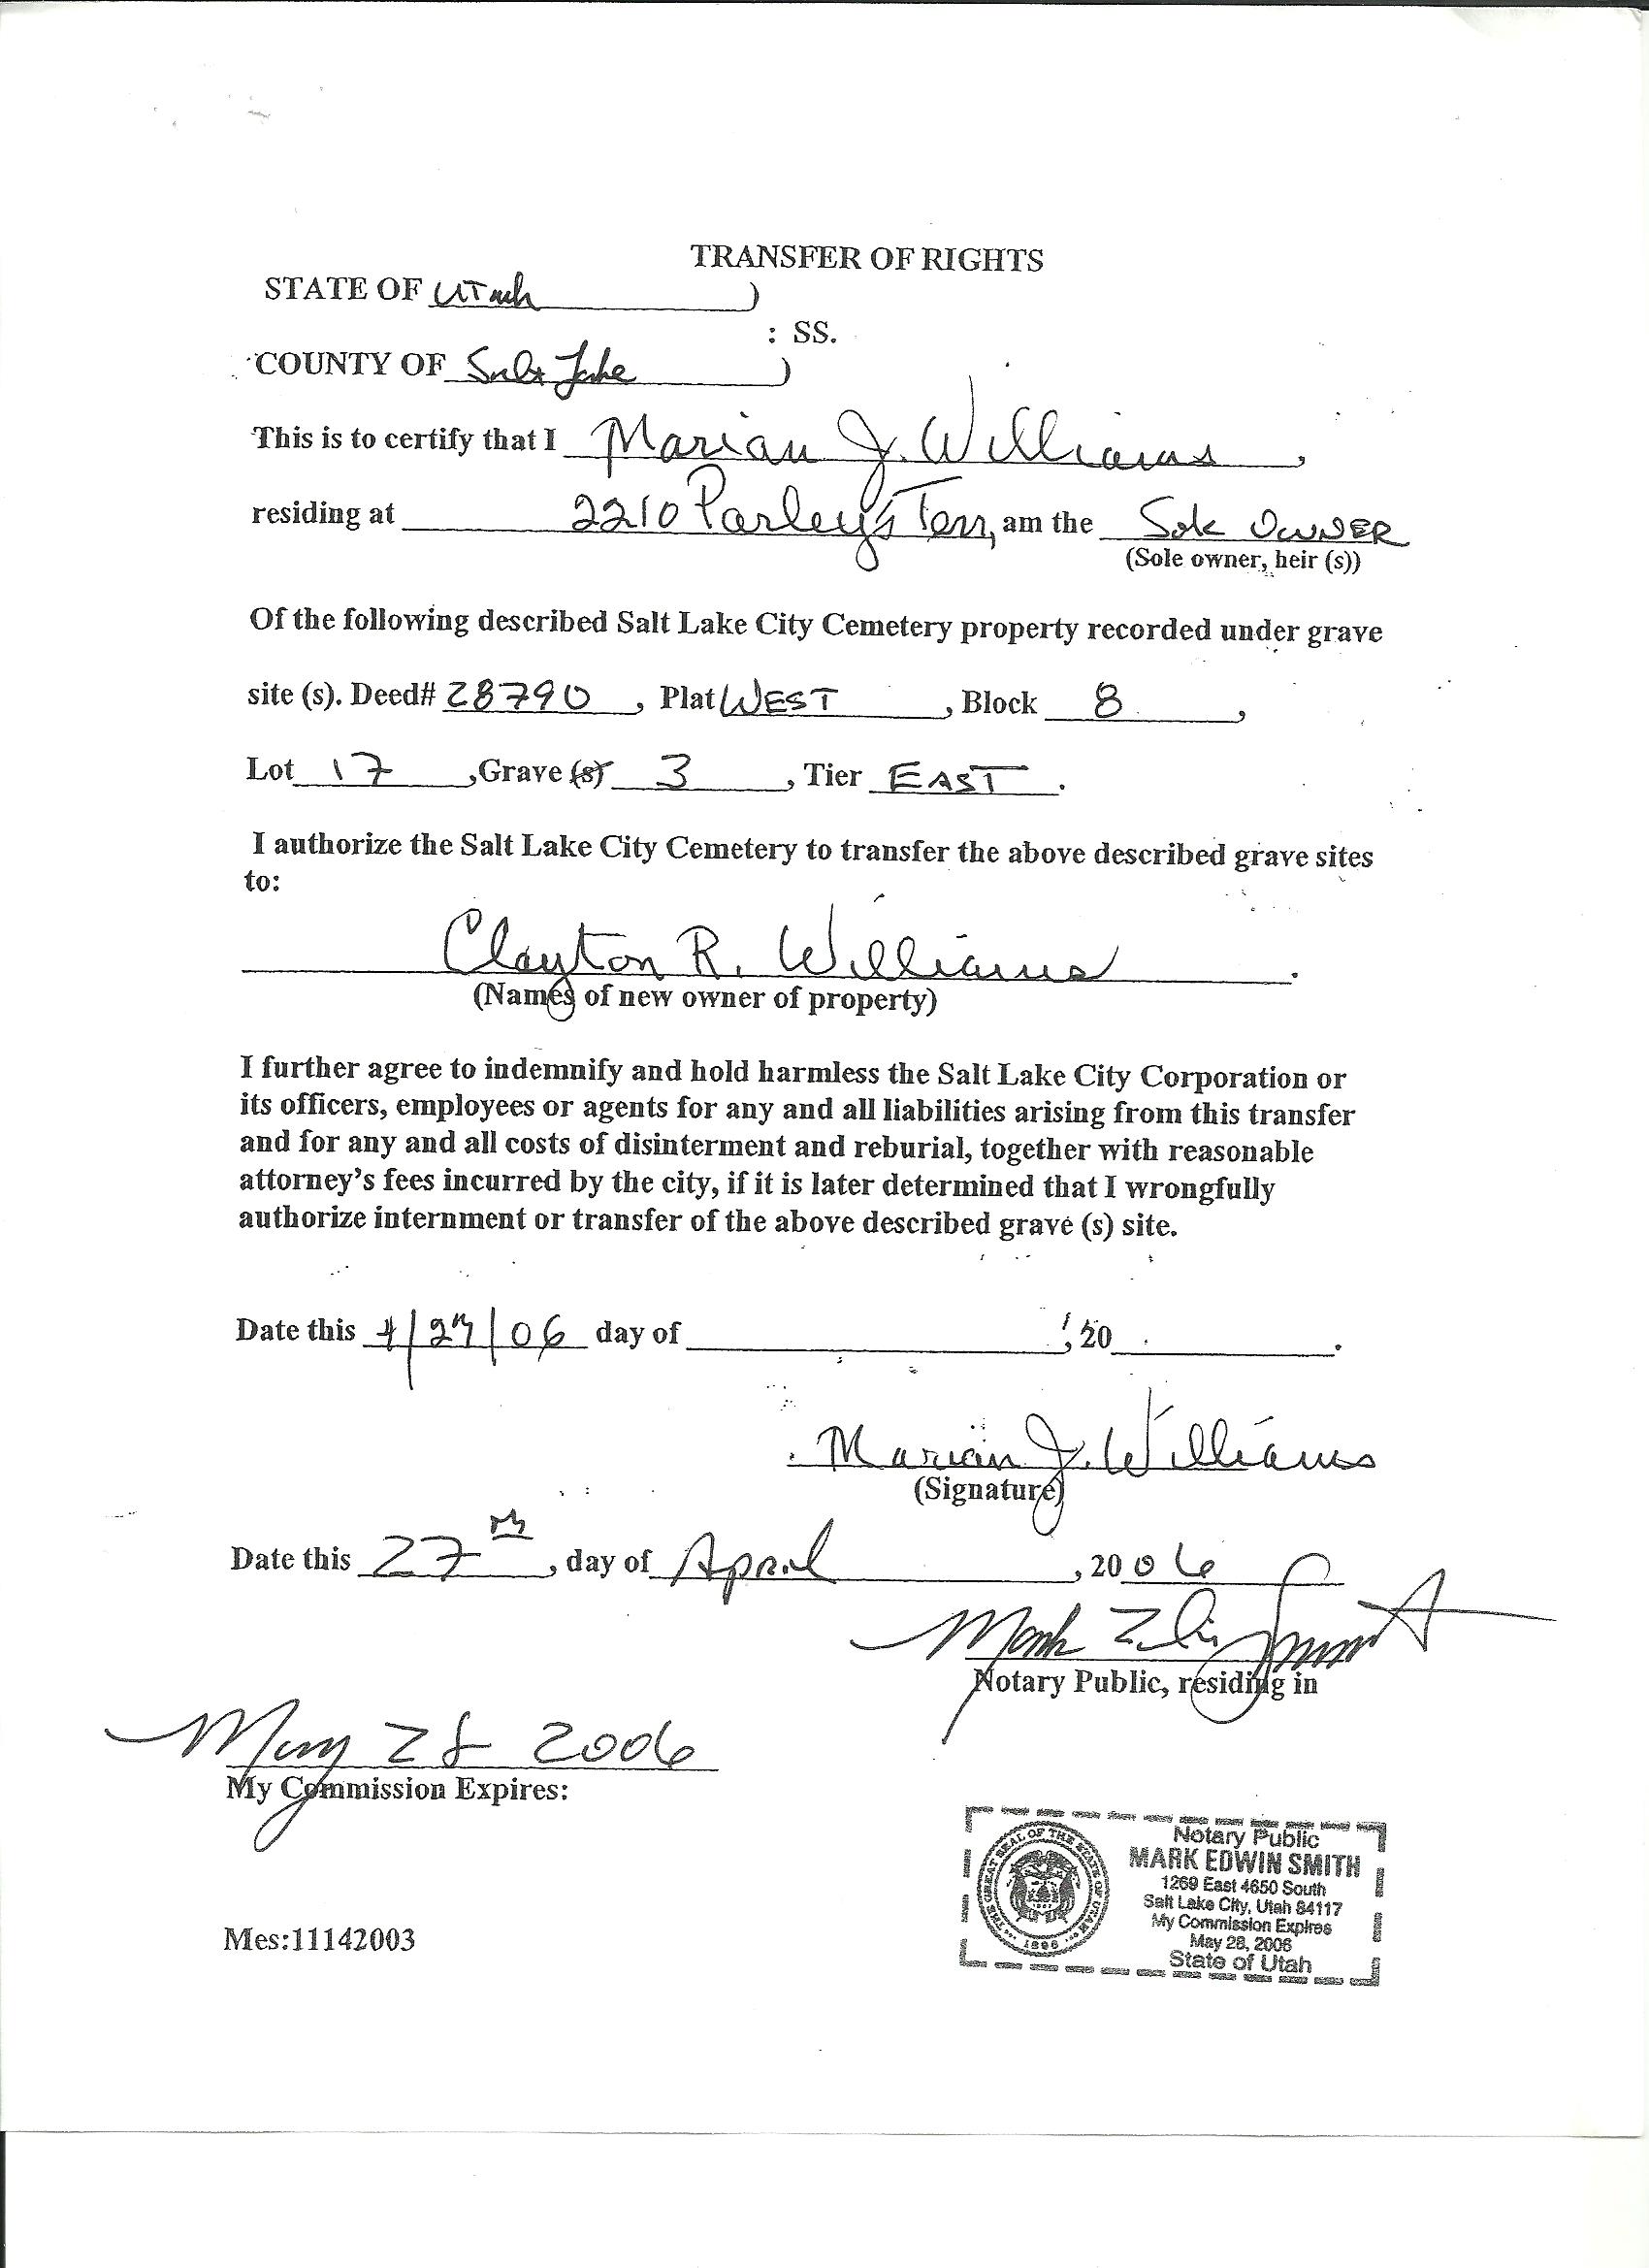 TRANSFER OF RIGHTS
STATE OF Utah )
: SS.
COUNTY OF Salt Lake )
This is to certify that I Marian J. Williams,
residing at 2210 Parley's Terr, am the Sole OWNER
(Sole owner, heir (s))
Of the following described Salt Lake City Cemetery property recorded under grave
site (s). Deed# 28790, Plat WEST, Block 8,
Lot 17, Grave (s) 3, Tier EAST.
I authorize the Salt Lake City Cemetery to transfer the above described grave sites
to:
Clayton R. Williams.
(Names of new owner of property)
I further agree to indemnify and hold harmless the Salt Lake City Corporation or
its officers, employees or agents for any and all liabilities arising from this transfer
and for any and all costs of disinterment and reburial, together with reasonable
attorney's fees incurred by the city, if it is later determined that I wrongfully
authorize internment or transfer of the above described grave (s) site.
Date this 4/27/06 day of , 20 .
Marian J. Williams
(Signature)
Date this 27th, day of April, 2006
Mark Edwin Smith
Notary Public, residing in
May 28 2006
My Commission Expires:
Notary Public
MARK EDWIN SMITH
1269 East 4650 South
Salt Lake City, Utah 84117
My Commission Expires
May 28, 2006
State of Utah
THE GREAT SEAL OF THE STATE OF UTAH
1896
Mes:11142003